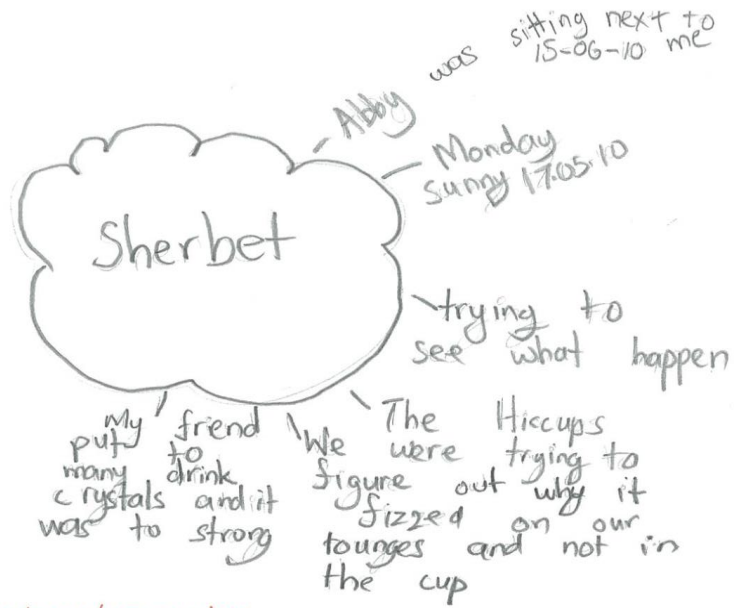 Sherbet
Abby was sitting next to
15-06-10 me
Monday
Sunny 17.05.10
trying to
see what happen
The Hiccups
We were trying to
figure out why it
fizzed on our
tounges and not in
the cup
My friend
put to
many drink
crystals and it
was to strong